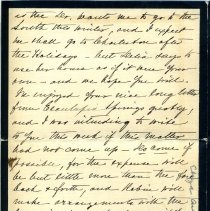 as the Dr. wants me to go to the
South this winter, and I expect
we shall go to Charleston after
the Holidays - but Delia says to
use her house as if it were your
own - and we hope you will.
We enjoyed your nice long letter
from Springs greatly,
and I was intending to write
to you this week if this matter
had not come up - Do come if
possible, for the expense will
be but little more than the fare
back & forth, and Robin will
make arrangements with the